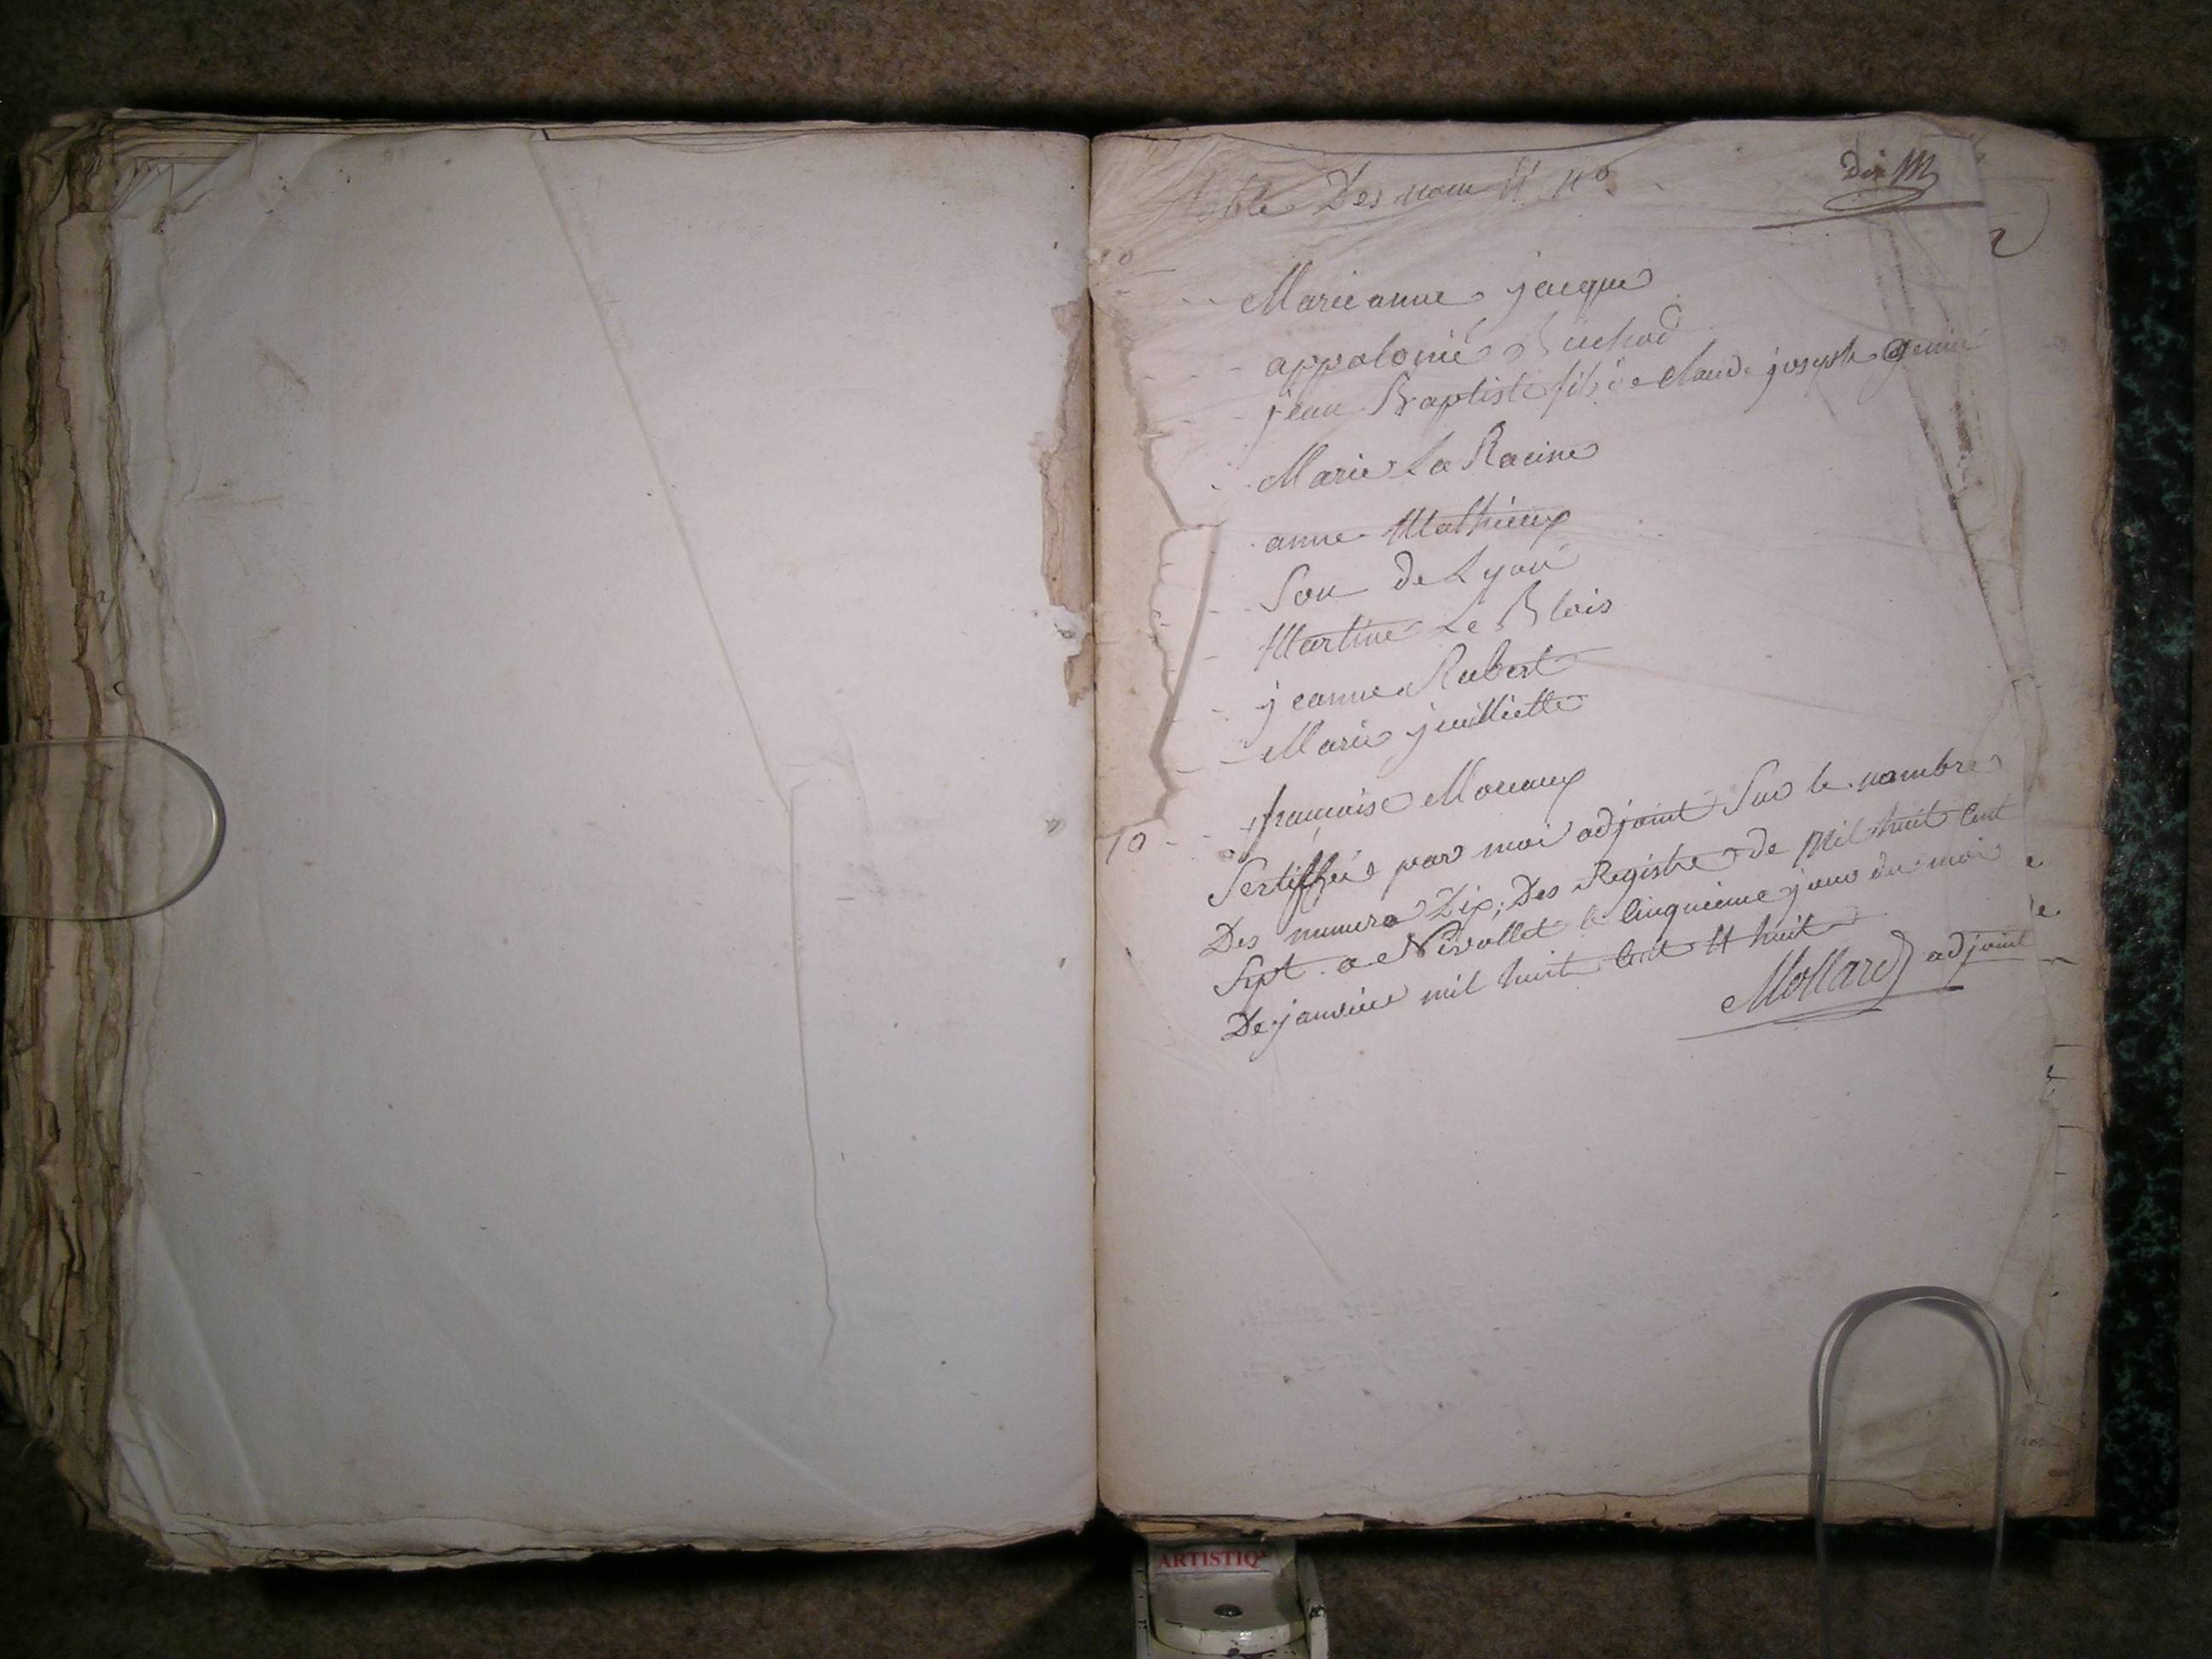 Table Des nom et no
Dix M
2
Marieanne jacque
appolonie Ruchod
jean Baptiste fils de Claude joseph
Marie La Racine
anne Mathieux
Son de Lyoné
Martine Le Blois
jeanne Robert
Marie juilliette
françoise Moucaux
10 Sertiffiée par moi adjoint Sur le nombre
Des numero Dix; Des Registre de Mil huit Cent
Sept a Nivollet le Cinquieme jour du moi
De janvier mil huit Cent et huit
Mollard adjoint
ARTISTIQ